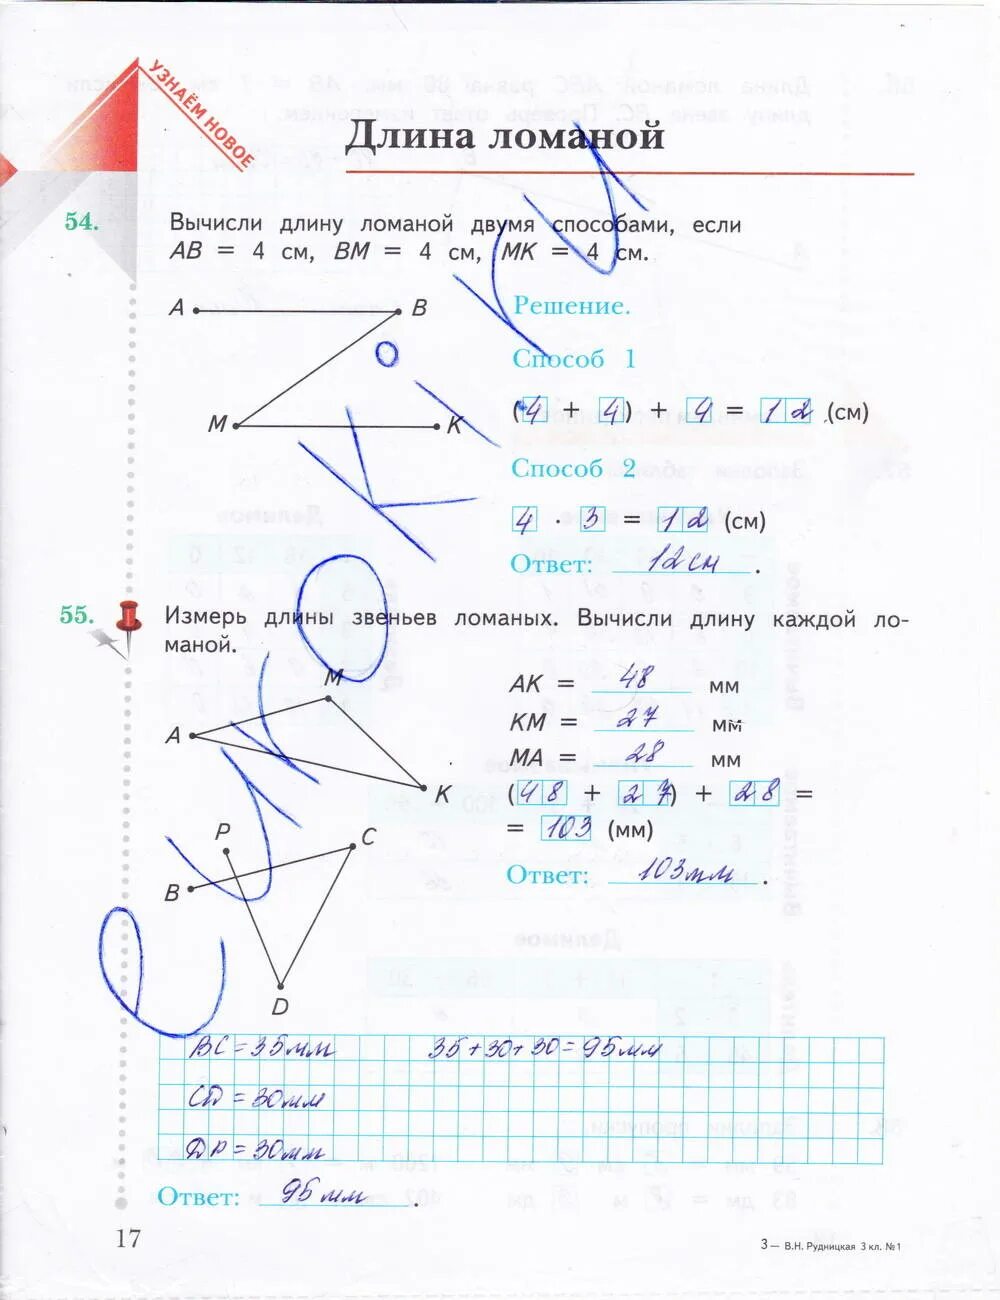 УЗНАЁМ НОВОЕ
Длина ломаной
54. Вычисли длину ломаной двумя способами, если
AB = 4 см, BM = 4 см, MK = 4 см.
A B
M K
Решение.
Способ 1
(4 + 4) + 4 = 12 (см)
Способ 2
4 · 3 = 12 (см)
Ответ: 12 см.
55. Измерь длины звеньев ломаных. Вычисли длину каждой ло-
маной.
M
A
K
AK = 48 мм
KM = 27 мм
MA = 28 мм
(48 + 27) + 28 =
= 103 (мм)
Ответ: 103 мм.
P C
B
D
BC = 35 мм 35 + 30 + 30 = 95 мм
CD = 30 мм
DP = 30 мм
Ответ: 95 мм.
17
3 — В.Н. Рудницкая 3 кл. №1